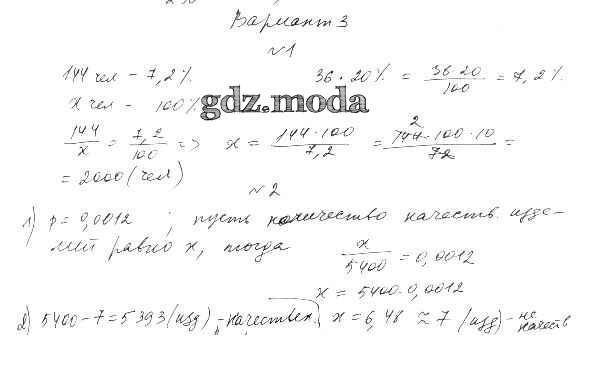 Вариант 3
№1
144 чел - 7,2%    36 · 20% = 36·20/100 = 7,2%
x чел - 100%
gdz.moda
144/x = 7,2/100 => x = 144·100/7,2 = 144·100·10/72 =
= 2000 (чел)
№2
1) p = 0,0012 ; пусть количество качеств. изде-
лий равно x, тогда x/5400 = 0,0012
x = 5400·0,0012
2) 5400-7=5393 (изд) - качествен. x = 6,48 ≈ 7 (изд) - не качеств